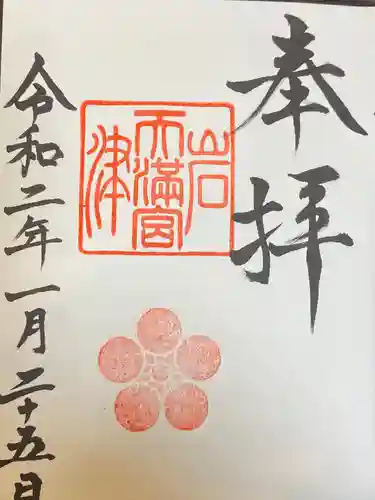 奉拝
岩
天満宮
津
令和二年一月二十五日